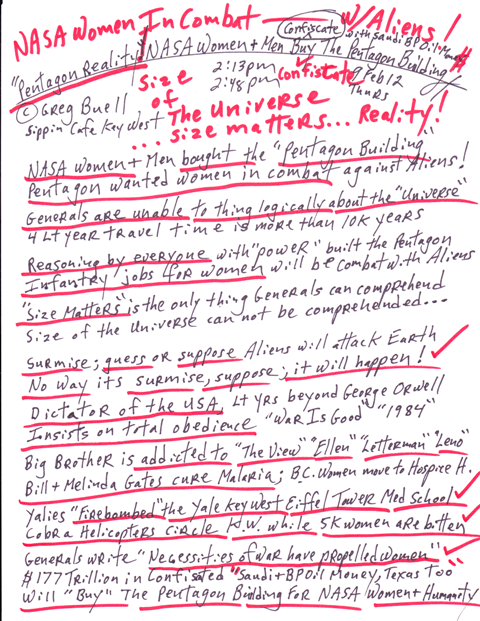 NASA Women In Combat — w/Aliens!
Confiscate with Saudi BP Oil Money $
"Pentagon Reality" NASA Women + Men Buy The Pentagon Building
2:13pm confiscate 9 Feb 12
2:48pm Thurs
© Greg Buell Size
of
Sippin Cafe Key West The Universe
... size matters... Reality!
NASA Women + Men bought the "Pentagon Building"
Pentagon wanted women in combat against Aliens!
Generals are unable to thing logically about the "Universe"
4 Lt year travel time is more than 10K years
Reasoning by everyone with "power" built the Pentagon
Infantry jobs for women will be combat with Aliens
"Size Matters" is the only thing Generals can comprehend
Size of the Universe can not be comprehended...
Surmise; guess or suppose Aliens will attack Earth
No way its surmise, suppose; it will happen!
Dictator of the USA, Lt yrs beyond George Orwell
Insists on total obedience "War Is Good" "1984"
Big Brother is addicted to "The View" "Ellen" "Letterman" "Leno"
Bill + Melinda Gates cure Malaria; B.C. Women move to Hospice H.
Yalies "Firebombed" the Yale Key West Eiffel Tower Med School
Cobra Helicopters circle K.W. while 5K women are bitten
Generals write "Necessities of war have propelled women"
$177 Trillion in Confisated "Saudi + BP Oil Money, Texas Too"
Will "Buy" The Pentagon Building For NASA Women + Humanity